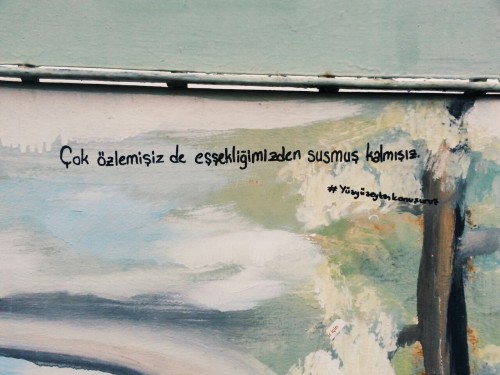 Çok özlemişiz de eşşekliğimizden susmuş kalmışız.